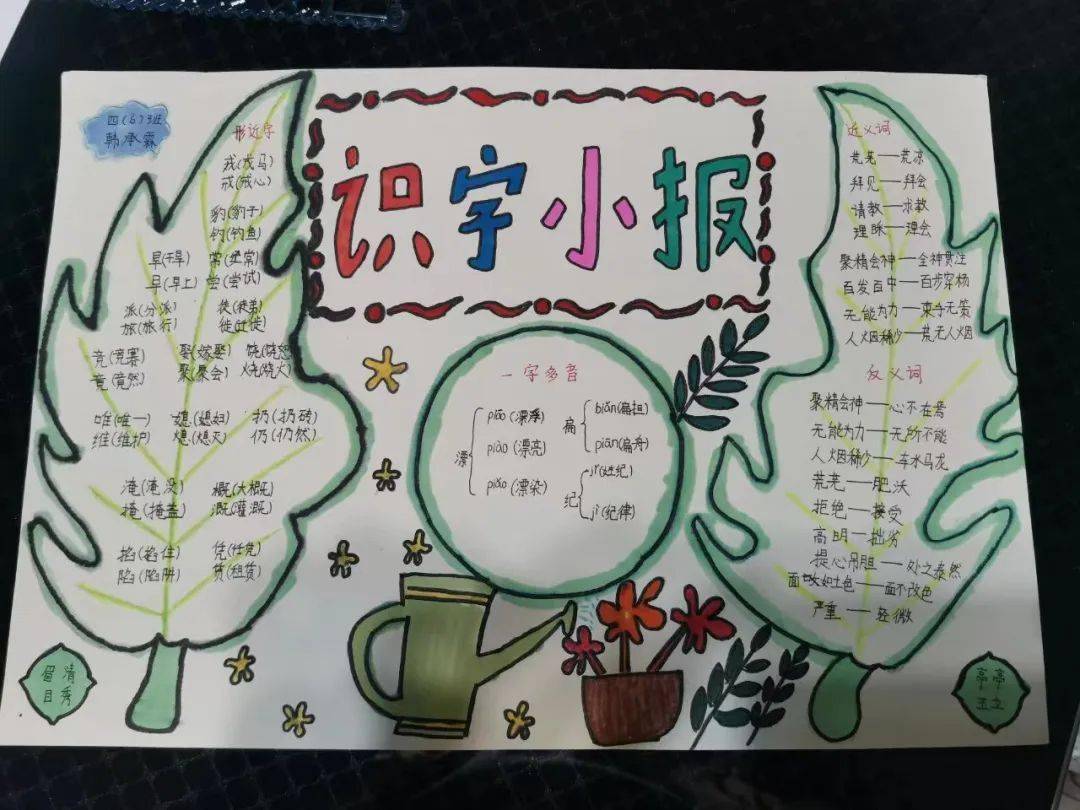 四(6)班
韩承霖
识字小报
形近字
戎(戎马)
戒(戒心)
豹(豹子)
钓(钓鱼)
旱(干旱) 常(经常)
早(早上) 尝(尝试)
派(分派) 徒(徒弟)
旅(旅行) 徙(迁徙)
竞(竞赛) 娶(嫁娶) 饶(饶恕)
竟(竟然) 聚(聚会) 烧(烧火)
唯(唯一) 媳(媳妇) 扔(扔砖)
维(维护) 熄(熄灭) 仍(仍然)
淹(淹没) 概(大概)
掩(掩盖) 溉(灌溉)
掐(掐住) 凭(任凭)
陷(陷阱) 赁(租赁)
眉清
目秀
一字多音
漂
piāo(漂浮)
piào(漂亮)
piǎo(漂染)
扁
biǎn(扁担)
piān(扁舟)
纪
jǐ(姓纪)
jì(纪律)
近义词
荒芜——荒凉
拜见——拜会
请教——求教
理睬——理会
聚精会神——全神贯注
百发百中——百步穿杨
无能为力——束手无策
人烟稀少——荒无人烟
反义词
聚精会神——心不在焉
无能为力——无所不能
人烟稀少——车水马龙
荒芜——肥沃
拒绝——接受
高明——拙劣
提心吊胆——处之泰然
面如土色——面不改色
严重——轻微
亭亭
玉立